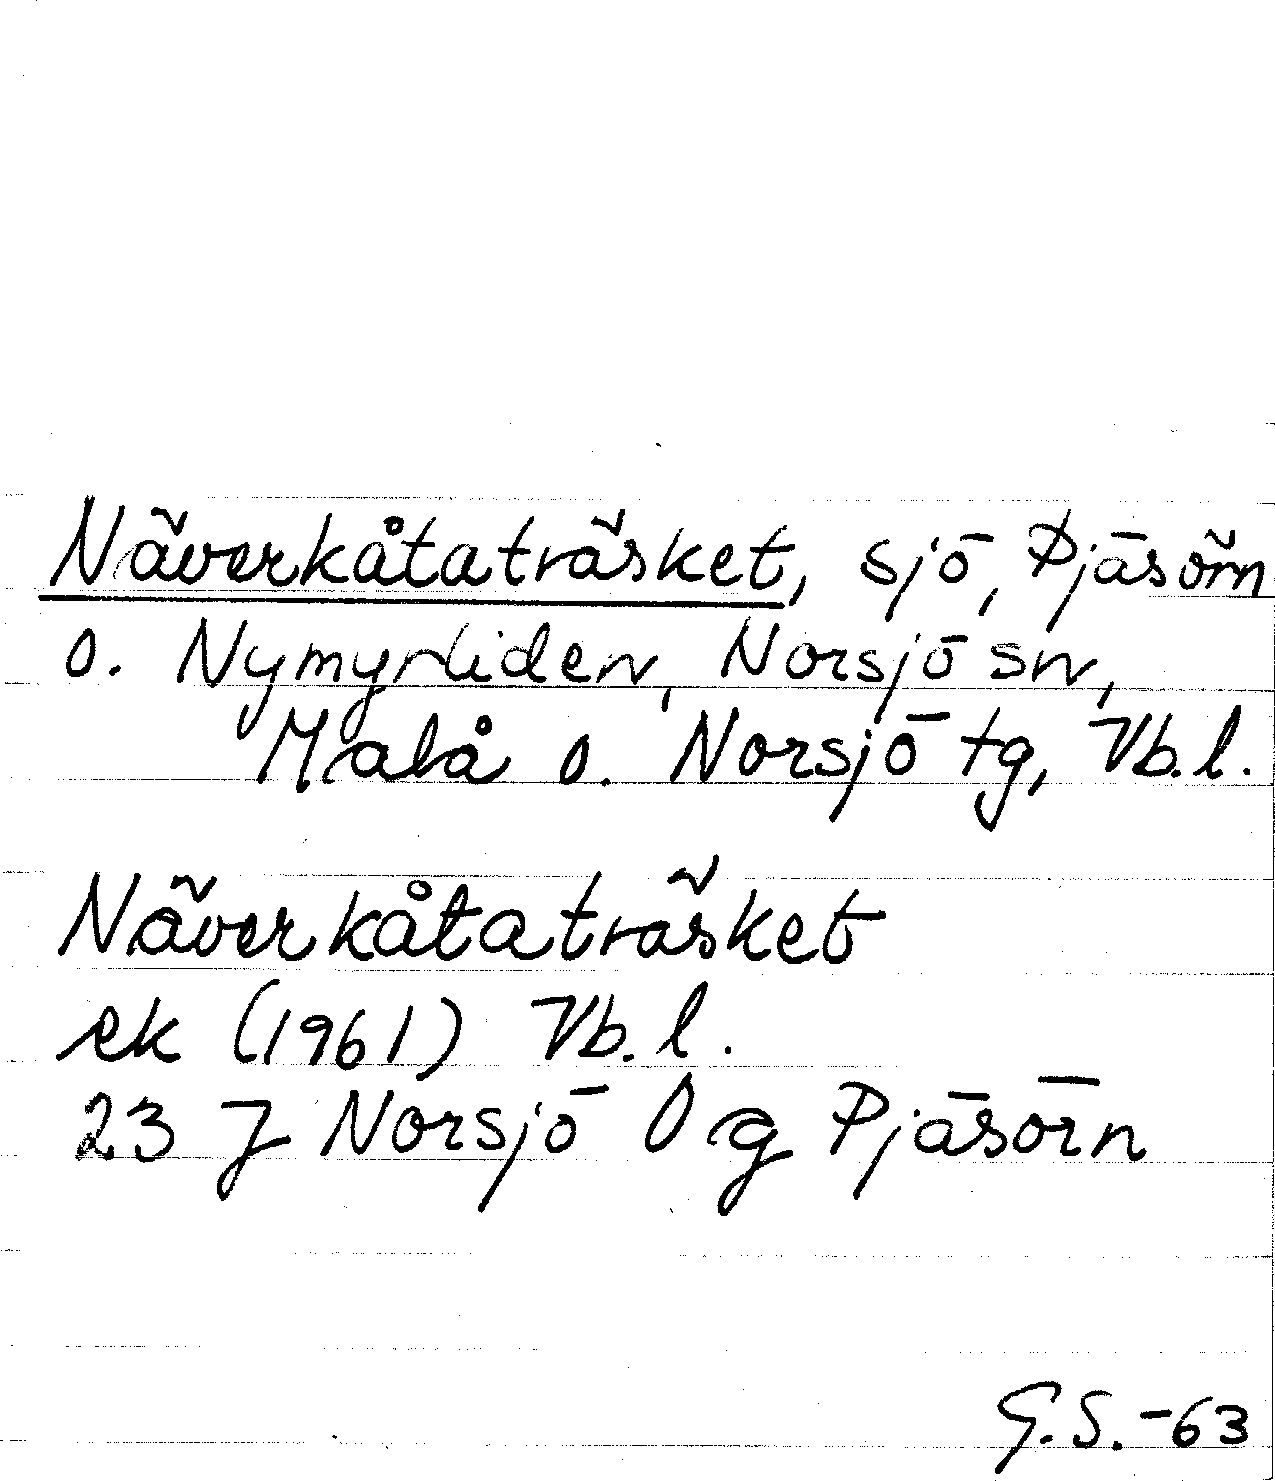 Näverkåtaträsket, sjö, Pjäsörn
o. Nymyrliden, Norsjö sn,
Malå o. Norsjö tg, Vb.l.
Näverkåtaträsket
ek (1961) Vb.l.
23 J Norsjö 0 g Pjäsörn
G.S.-63